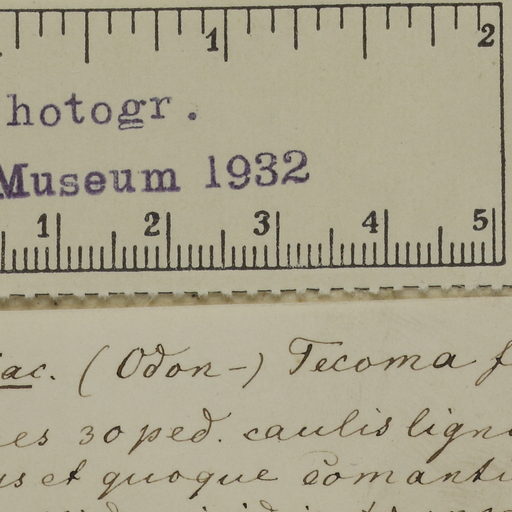 1 2
hotogr.
Museum 1932
1 2 3 4 5
ac. (Odon-) Tecoma f
es 30 ped. caulis lign
us et quoque comant